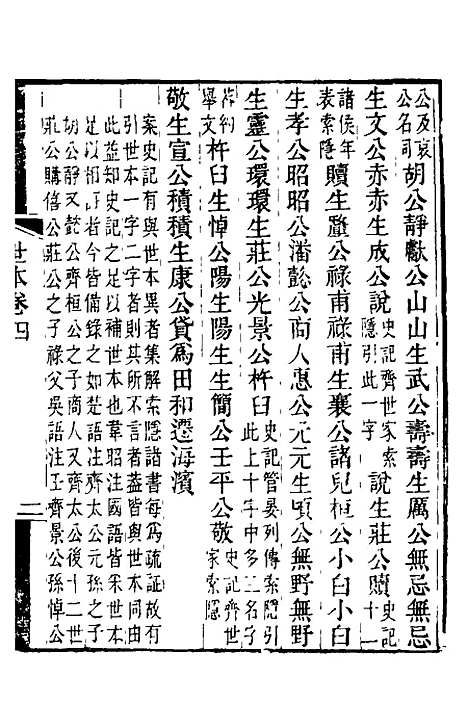 公及哀公名司胡公靜獻公山山生武公壽壽生厲公無忌無忌
生文公赤赤生成公說史記齊世家索隱引此一字說生莊公贖史記十一
諸侯年表索隱贖生釐公祿甫祿甫生襄公諸兒桓公小白小白
生孝公昭昭公潘懿公商人惠公元元生頃公無野無野
生靈公環環生莊公光景公杵臼史記管晏列傳索隱引此上十字中多三名字
茶約舉文杵臼生悼公陽生陽生生簡公壬平公敬史記齊世家索隱
敬生宣公積積生康公貸爲田和遷海濱
案史記有與世本異者集解索隱諸書每爲疏証故有
引世本一字二字者則其所不言者蓋皆與世本同由
此益知史記之足以補世本也韋昭注國語皆采世本
足以相
者今皆備錄之如楚語注齊太公元孫之子
胡公靜又懿公齊桓公之子商人又齊太公後十二世
莊公購僖公莊公之子祿父吳語注王齊景公孫悼公
世本卷四
二